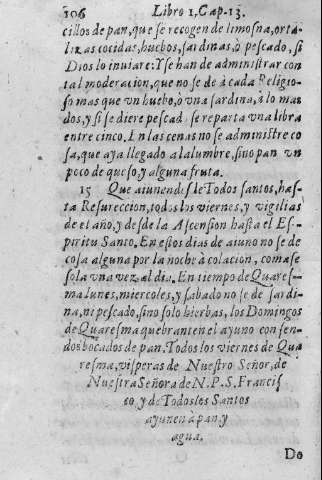 106 Libro 1, Cap. 13.
cillos de pan, que se recogen de limosna, orta-
lizas cocidas, huebos, sardinas, ò pescado, si
Dios lo inuiare: Y se han de administrar con
tal moderacion, que no se dè à cada Religio-
so mas que vn huebo, ò vna sardina, à lo mas
dos, y si se diere pescado se reparta vna libra
entre cinco. En las cenas no se administre co
sa, que aya llegado al alumbre, sino pan vn
poco de queso, y alguna fruta.
15 Que aiunen desde Todos santos, has-
ta Resureccion, todos los viernes, y vigilias
de el año, y desde la Ascension hasta el Es-
piritu Santo. En estos dias de aiuno no se dè
cosa alguna por la noche à colacion, comase
sola vna vez al dia. En tiempo de Quares-
ma lunes, miercoles, y sabado no se dè sardi-
na, ni pescado, sino solo hierbas, los Domingos
de Quaresma quebranten el ayuno con sen-
dos bocados de pan. Todos los viernes de Qua
resma, visperas de Nuestro Señor, de
Nuestra Señora de N. P. S. Francis
co y de Todos los Santos
ayunen à pan, y
agua.
Do